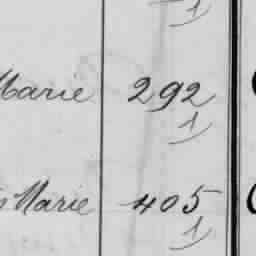 1
Marie 292
1
Marie 405
1